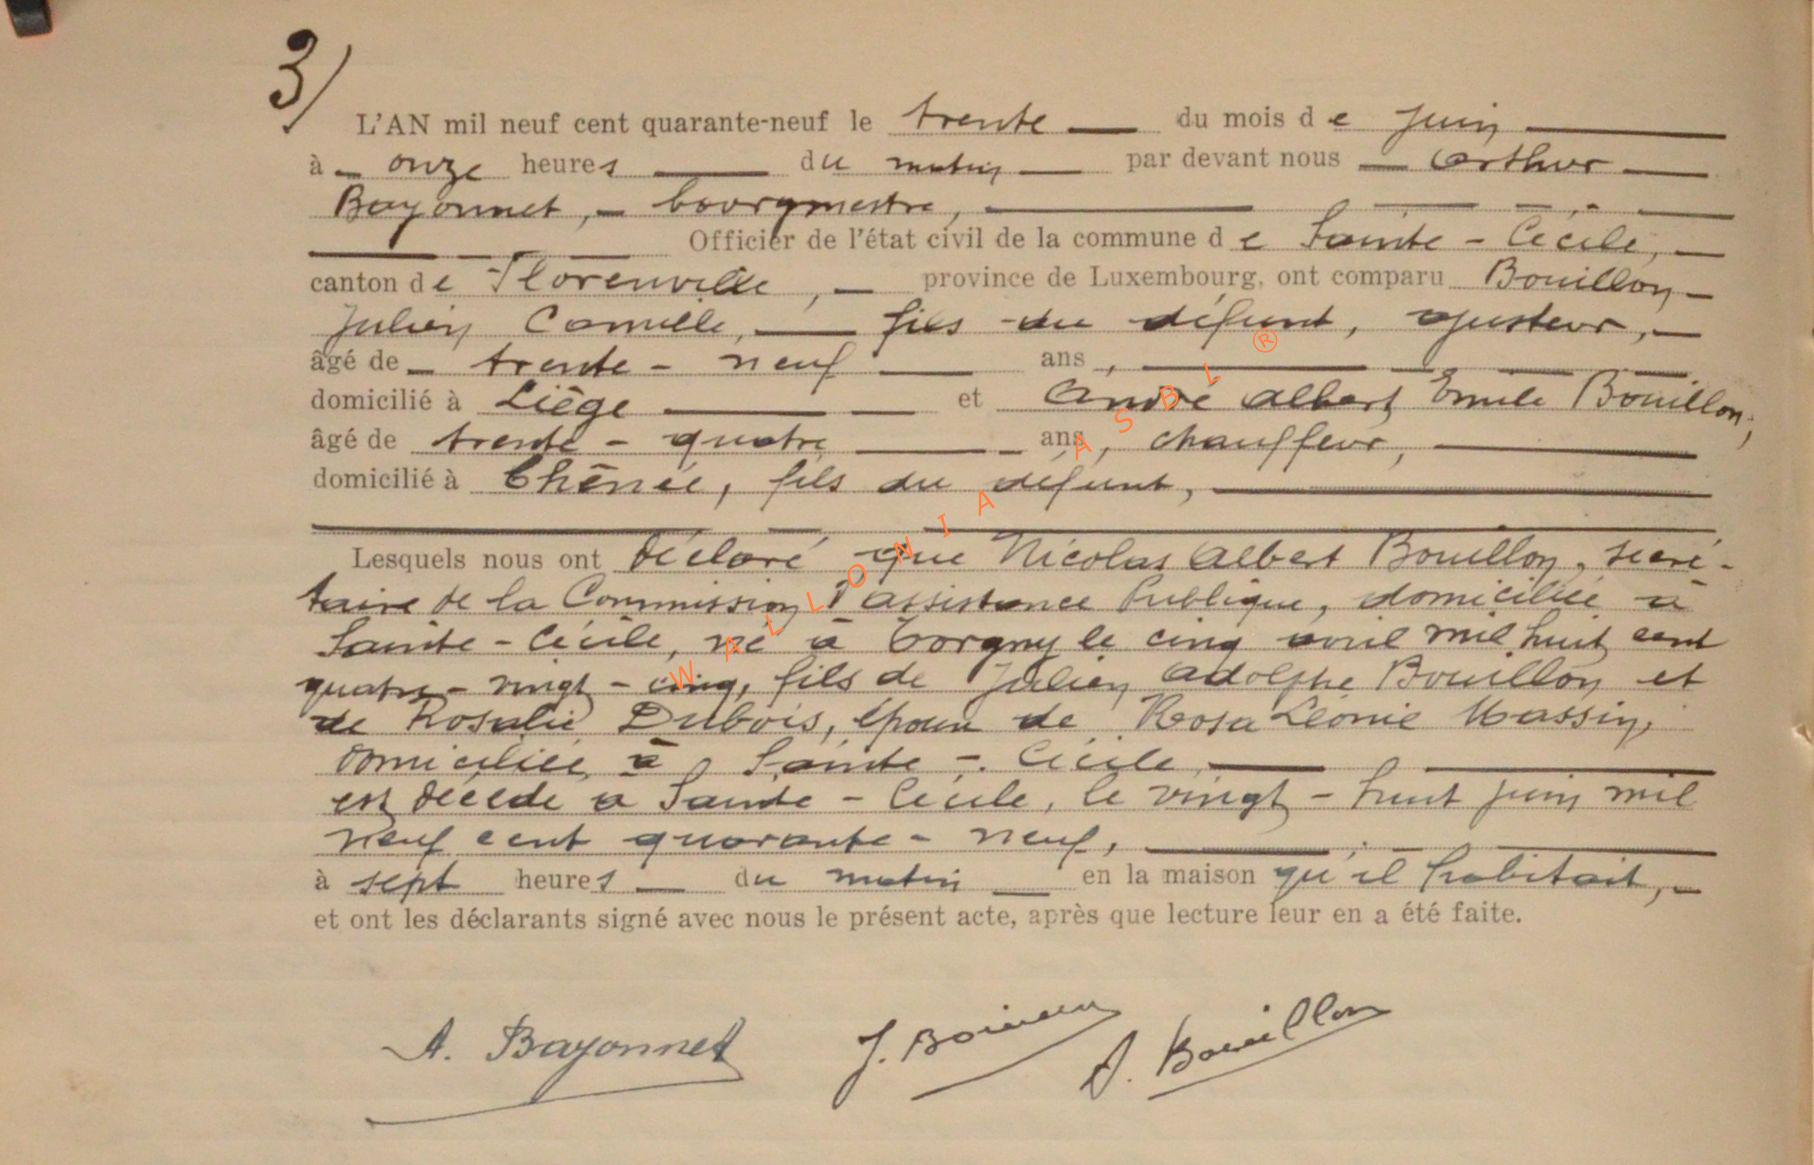 3/
L'AN mil neuf cent quarante-neuf le trente du mois de Juin
à onze heures du matin par devant nous Arthur
Bayonnet, bourgmestre,
Officier de l'état civil de la commune de Sainte-Cécile,
canton de Florenville, province de Luxembourg, ont comparu Bouillon
Julien Camille, fils du défunt, ajusteur,
âgé de trente-neuf ans,
domicilié à Liège et André Albert Emile Bouillon,
âgé de trente-quatre ans, chauffeur,
domicilié à Chênée, fils du défunt,
Lesquels nous ont déclaré que Nicolas Albert Bouillon, secré-
taire de la Commission d'assistance Publique, domiciliée à
Sainte-Cécile, né à Torgny le cinq avril mil huit cent
quatre-vingt-cinq, fils de Julien Adolphe Bouillon et
de Rosalie Dubois, époux de Rosa Léonie Massin,
domiciliée à Sainte-Cécile
est décédé à Sainte-Cécile, le vingt-huit juin mil
neuf cent quarante-neuf,
à sept heures du matin en la maison qu'il habitait,
et ont les déclarants signé avec nous le présent acte, après que lecture leur en a été faite.
A. Bayonnet J. Bouillon A. Bouillon
WALLONIA ASBL ®